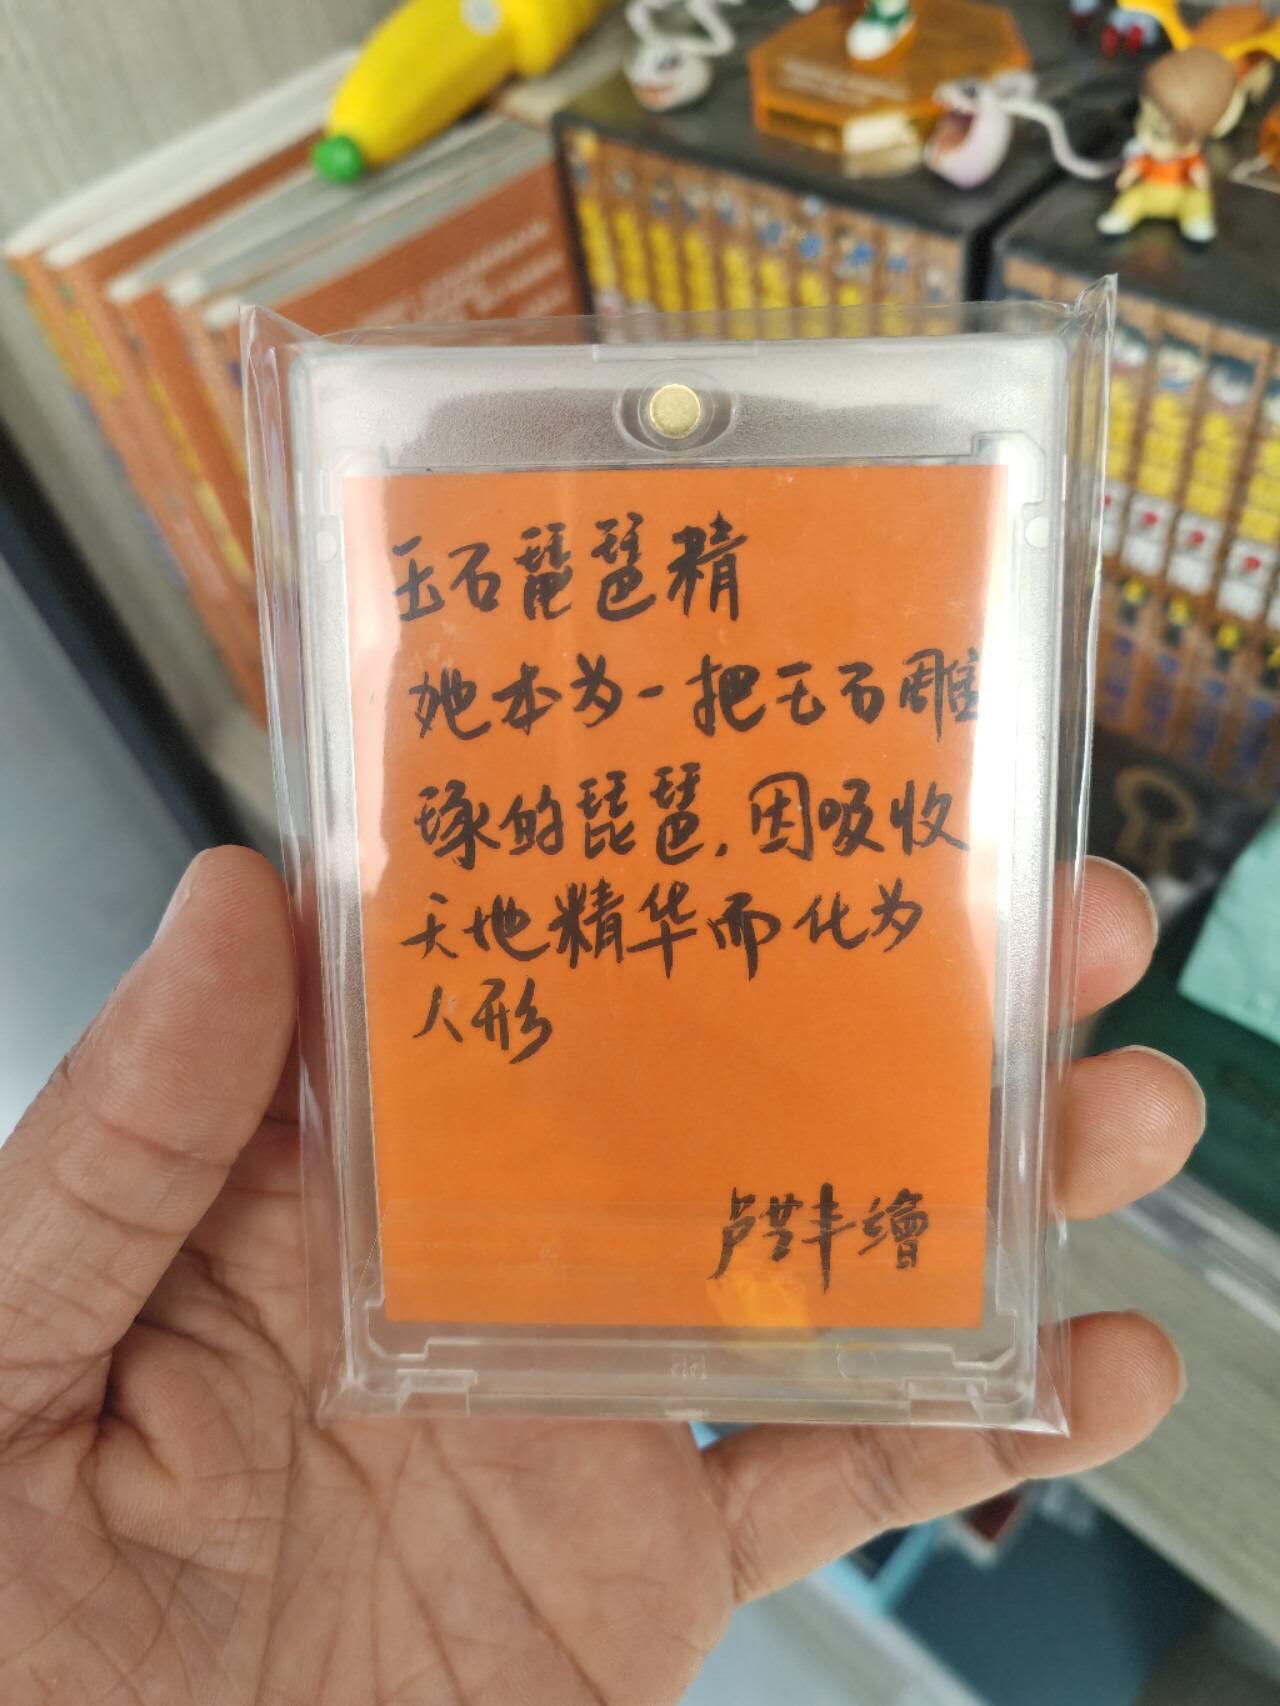 玉石琵琶精
她本为一把玉石雕
琢的琵琶,因吸收
天地精华而化为
人形
卢世丰繪